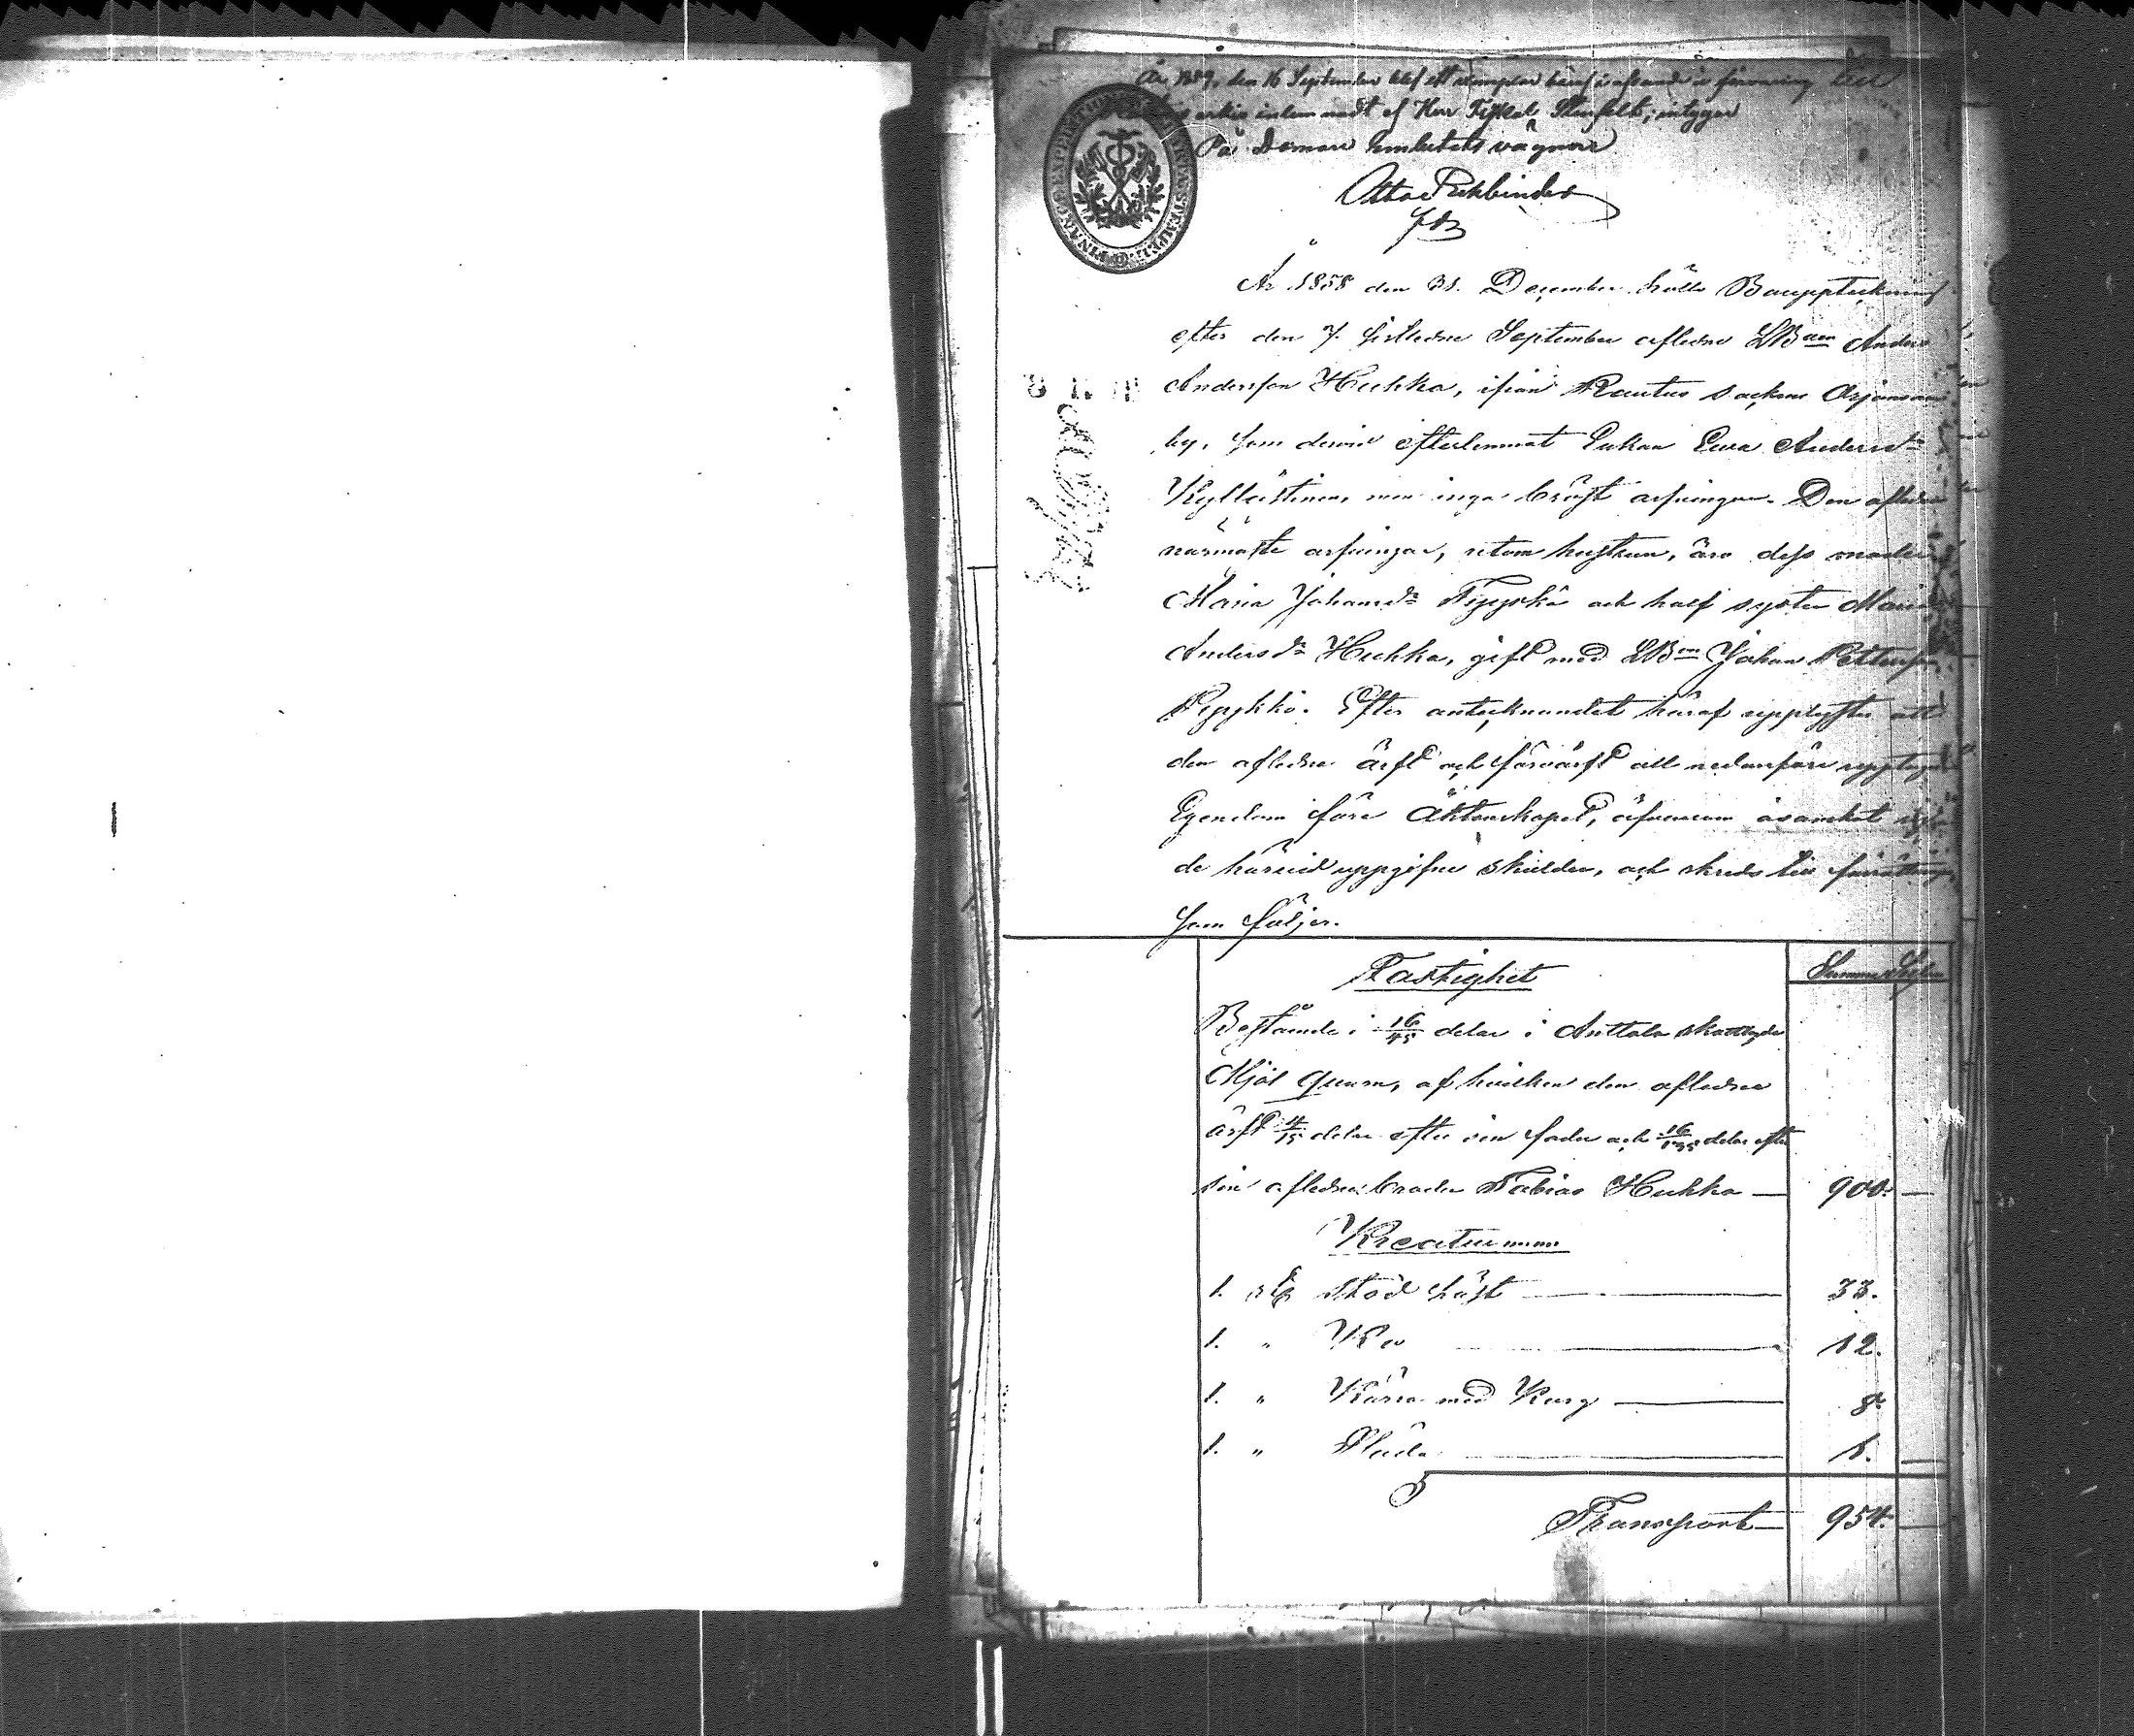 År 1859, den 16 September blef ett exemplar häraf i afskrift förvaring till
arkiv inlemnadt af Herr Fiskal Stenfelt; intygar
På Domare embetets vägnar
Otto Rehbinder
År 1858 den 31. December hölls Bouppteckning
efter den 7. sistledne September aflidne LBden Anders
Andersson Hukka, ifrån Rautus sockne Orjansaari
by, som dervid efterlemnat Enkan Ewa Andersdr
Kyllästinen, men inga bröst arfvingar. Den aflidnes
närmaste arfvingar, utom hustrun, äro dess moder
Maria Johansdr Pyyskä och half syster Maria
Andersdr Hukka, gift med LBen Johan Pettersson
Pyykkö. Efter antecknandet häraf upplystes att
den aflidne ärft och förvärft all nedanföre upptagd
Egendom före Äktenskapet, äfvensom åsamkat sig
de härvid uppgifne skulder, och skreds till förrättning,
som följer.
Fastighet
Summa Sylfver
Bestående i 16/45 delar i Anttala skattlagde
Mjöl qvarn, af hvilken den aflidne
ärft 4/15 delar efter sin fader och 16/135 delar efter
sin aflidne broder Tobias Hukka — 900. —
Kreatur
1. st. Stod häst — 33.
1. " Ko — 12.
1. " Kärra med Korg — 8.
1. " Släda — 1.
Transport — 954. —